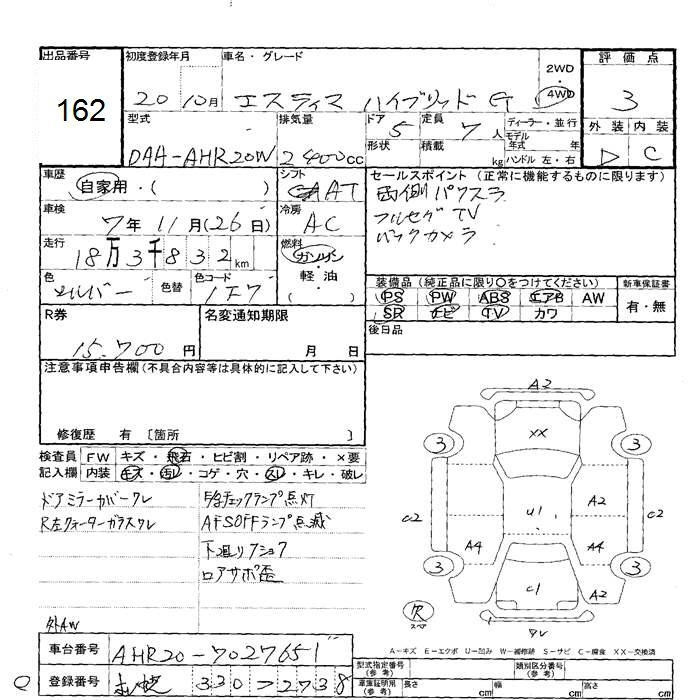 出品番号
162
初度登録年月
20 10月
車名・グレード
エスティマ ハイブリッド G
2WD
・
4WD
評価点
3
外装 内装
C
型式
DAA-AHR20W
排気量
2400cc
ドア
5
定員
7人
形状
積載
kg
ディーラー・並行
モデル
年式 年
ハンドル 左・右
車歴
自家用・( )
車検
7年 11月(26日)
走行
18万3千832km
色
シルバー
色替
色コード
1F7
シフト
AT
冷房
AC
燃料
ガソリン
・
軽油
( )
セールスポイント(正常に機能するものに限ります)
両側パワスラ
フルセグTV
バックカメラ
装備品(純正品に限り○をつけてください)
PS PW ABS エアB AW
SR ナビ TV カワ
新車保証書
有・無
後日品
R券
15,700円
名変通知期限
月 日
注意事項申告欄(不具合内容等は具体的に記入して下さい)
修復歴 有 〔箇所 〕
検査員
記入欄
FW キズ・飛石・ヒビ割・リペア跡・×要
内装 キズ・汚レ・コゲ・穴・スレ・キレ・破レ
ドアミラーカバーワレ
R左クォーターガラスワレ
外AW
チェックランプ点灯
AFSOFFランプ点滅
下廻りフショク
ロアサポ歪
A2
XX
3
3
A2
C2
C2
U1
A4
A4
3
3
C1
A2
欠
スペア
ワレ
A-キズ E-エクボ U-凹み W-補修跡 S-サビ C-腐食 XX-交換済
車台番号
AHR20-7027651
登録番号
330 2738
型式指定番号
(参考)
類別区分番号
(参考)
車庫証明用
(参考)
長さ cm
幅 cm
高さ cm